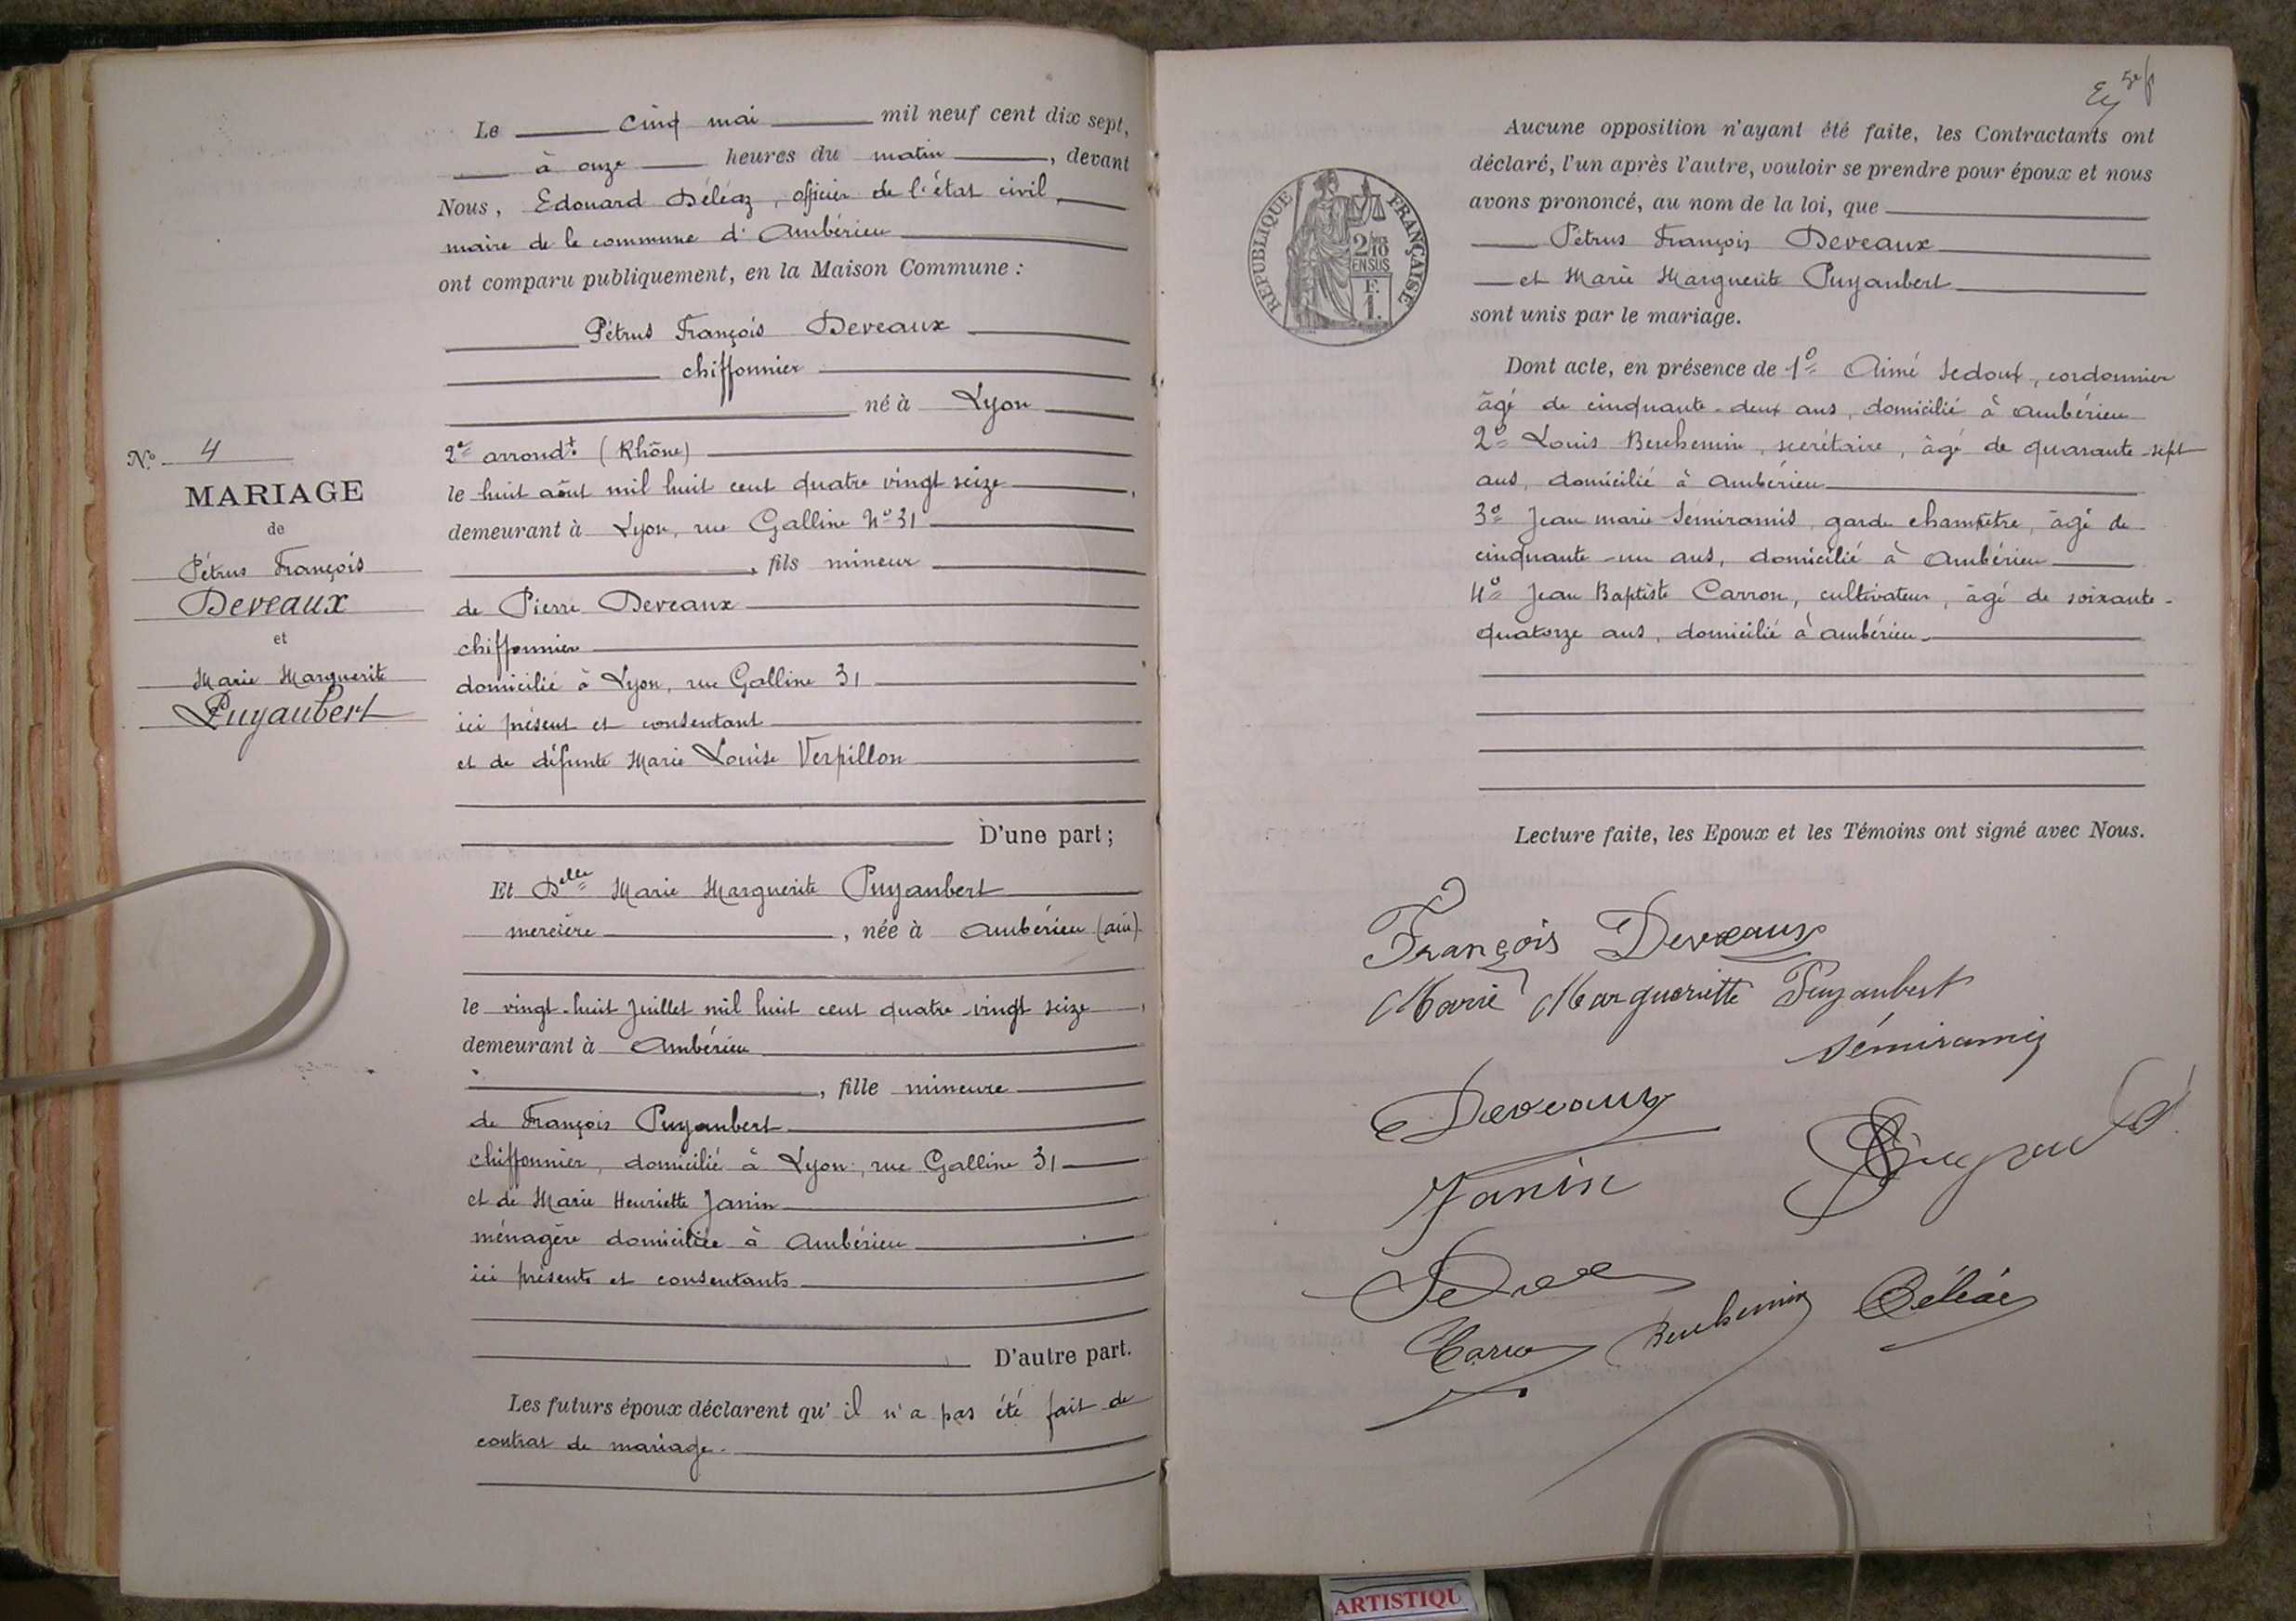 Le cinq mai mil neuf cent dix sept,
à onze heures du matin, devant
Nous, Edouard Déléaz, officier de l'état civil,
maire de la commune d'Ambérieu
ont comparu publiquement, en la Maison Commune :
Pétrus François Deveaux
chiffonnier
né à Lyon
2e arrondt (Rhône)
le huit août mil huit cent quatre vingt seize,
demeurant à Lyon, rue Galline No 31
, fils mineur
de Pierre Deveaux
chiffonnier
domicilié à Lyon, rue Galline 31
ici présent et consentant
et de défunte Marie Louise Verpillon
D'une part ;
Et Delle Marie Marguerite Puyaubert
mercière, née à Ambérieu (ain)
le vingt-huit Juillet mil huit cent quatre-vingt seize,
demeurant à Ambérieu
, fille mineure
de François Puyaubert
chiffonnier, domicilié à Lyon, rue Galline 31
et de Marie Henriette Janin
ménagère domiciliée à Ambérieu
ici présents et consentants
D'autre part.
Les futurs époux déclarent qu'il n'a pas été fait de
contrat de mariage.
No 4
MARIAGE
de
Pétrus François
Deveaux
et
Marie Marguerite
Puyaubert
Aucune opposition n'ayant été faite, les Contractants ont
déclaré, l'un après l'autre, vouloir se prendre pour époux et nous
avons prononcé, au nom de la loi, que
Pétrus François Deveaux
et Marie Marguerite Puyaubert
sont unis par le mariage.
RÉPUBLIQUE FRANÇAISE
2/10
EN SUS
F.
1.
Dont acte, en présence de 1o Aimé Sedoux, cordonnier
âgé de cinquante-deux ans, domicilié à Ambérieu
2o Louis Beuchemin, secrétaire, âgé de quarante-sept
ans, domicilié à Ambérieu
3o Jean marie Sémiramis, garde champêtre, âgé de
cinquante-un ans, domicilié à Ambérieu
4o Jean Baptiste Carron, cultivateur, âgé de soixante-
quatorze ans, domicilié à Ambérieu
Lecture faite, les Epoux et les Témoins ont signé avec Nous.
François Deveaux
Marie Margueriette Puyaubert
Sémiramis
Deveaux
Janin
Beuchemin
Déléaz
ARTISTIQU